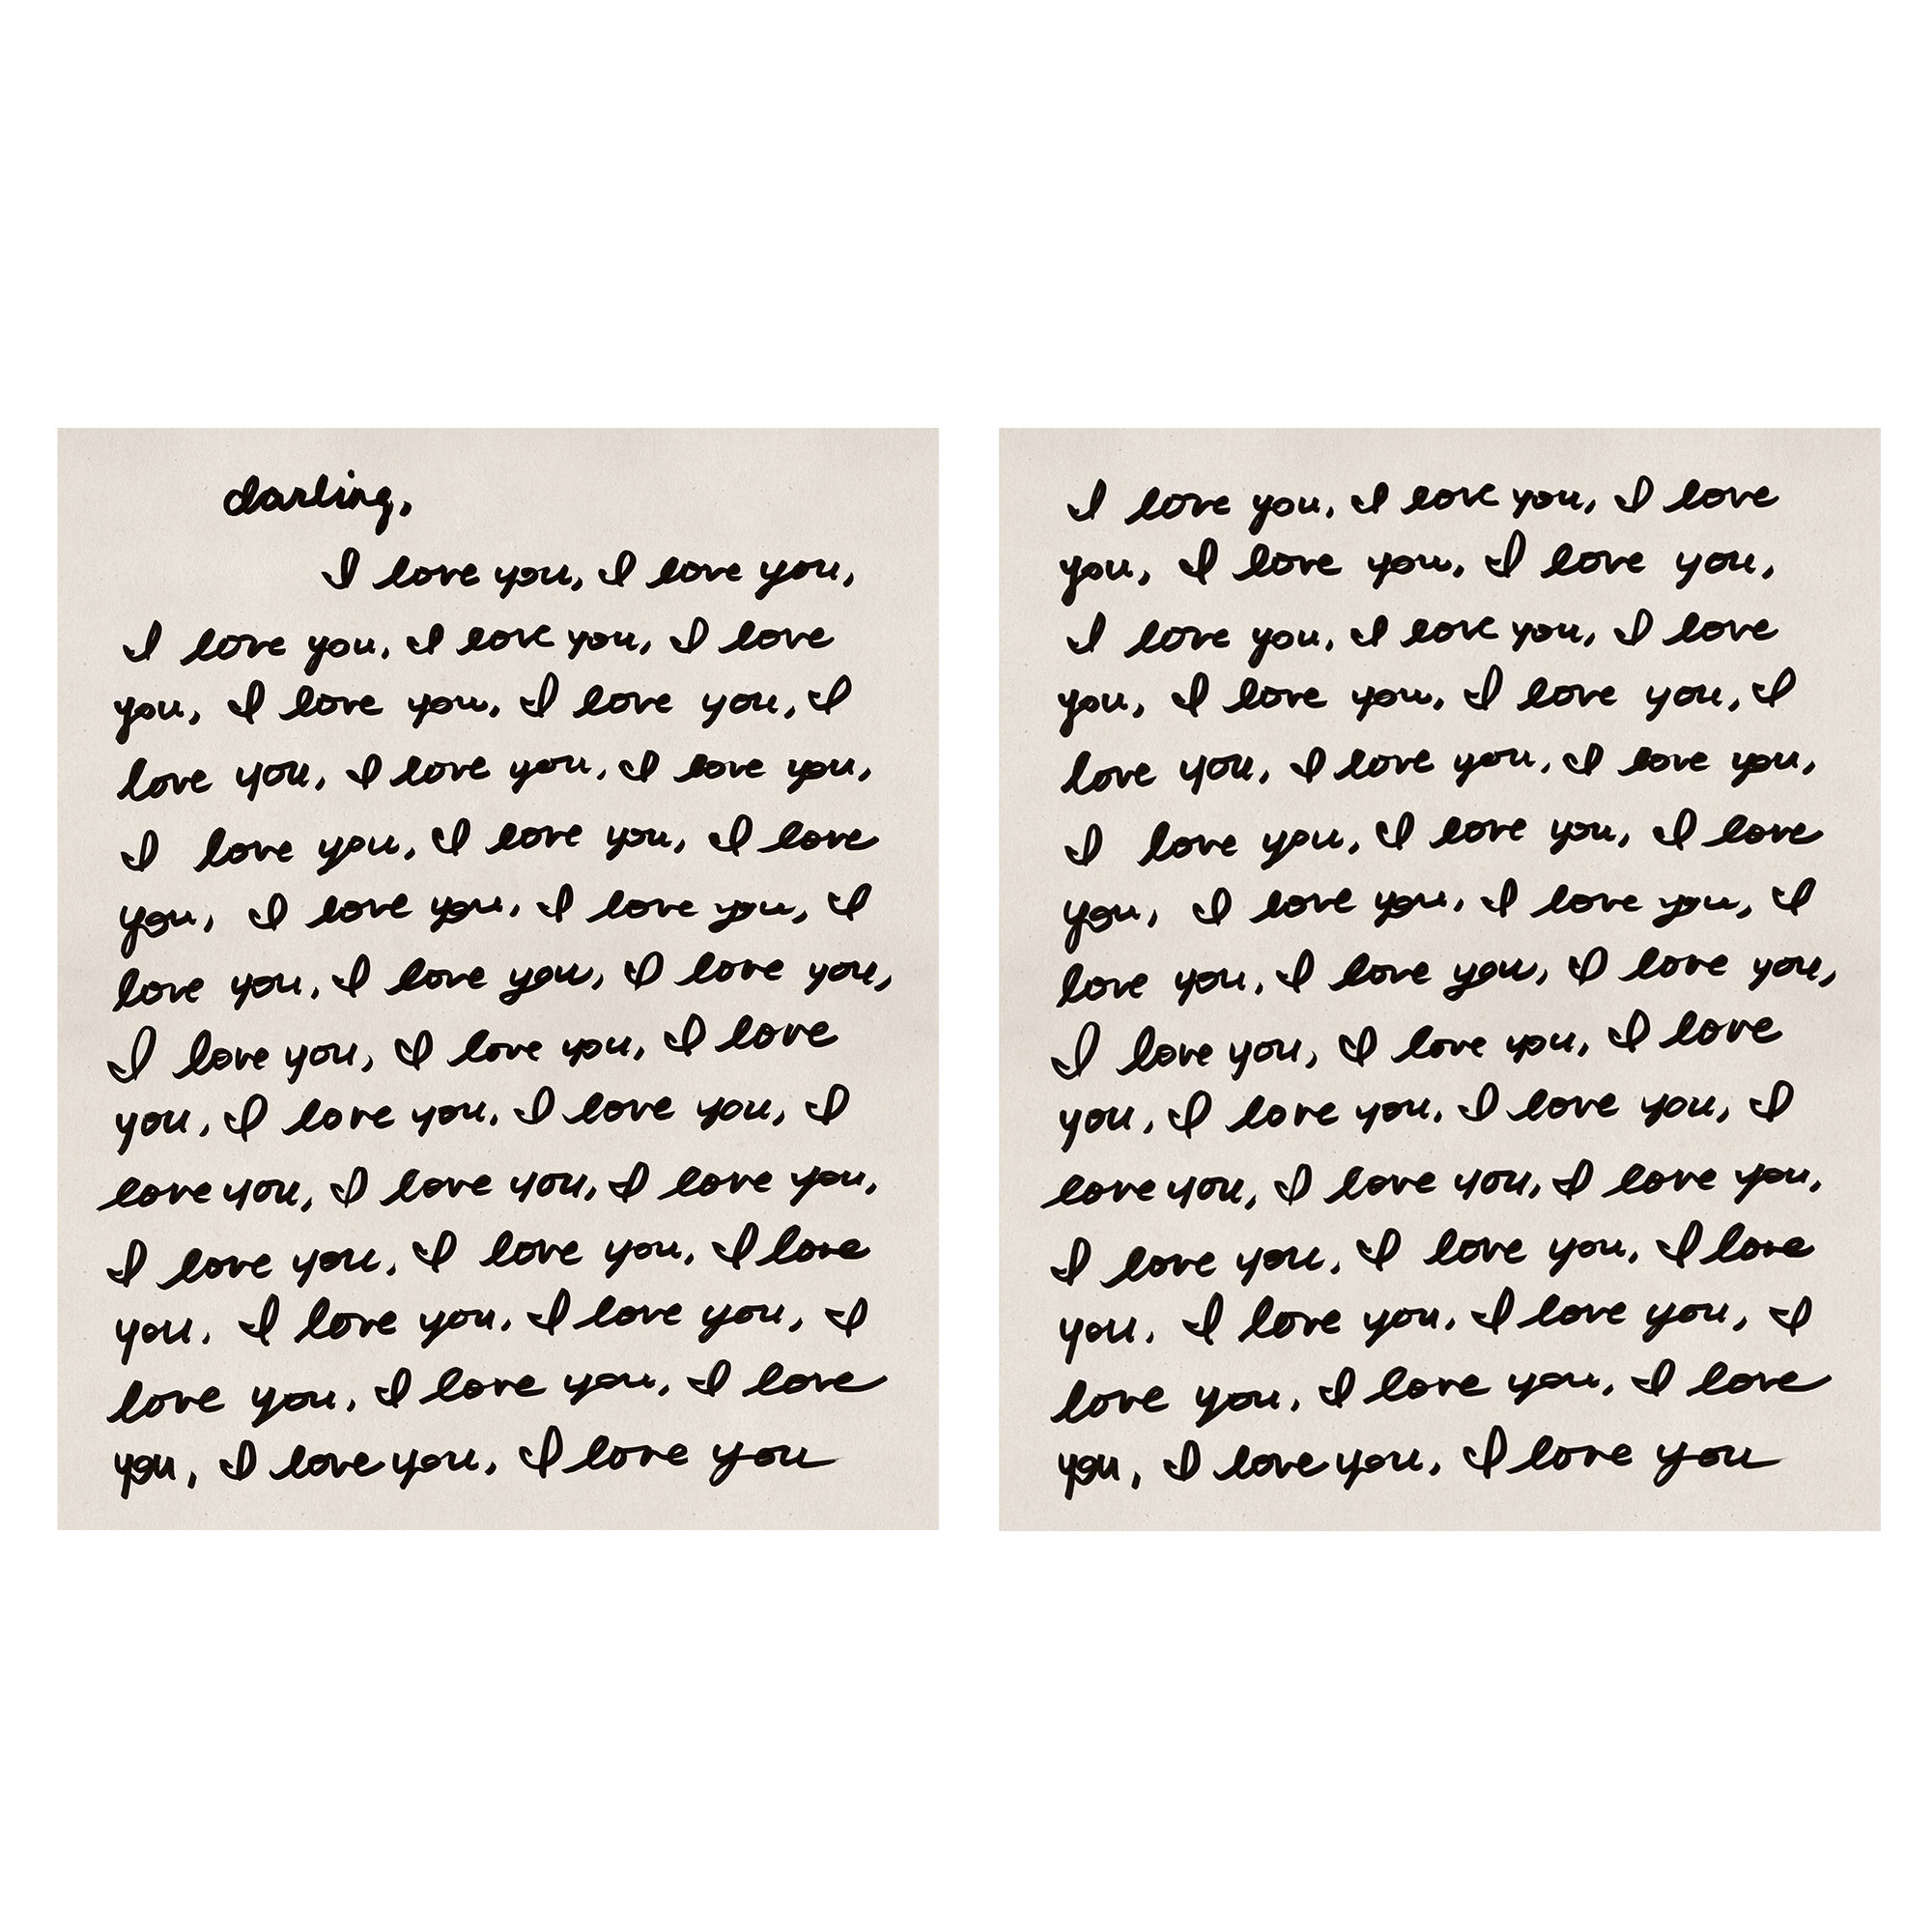 darling,
I love you, I love you,
I love you, I love you, I love
you, I love you, I love you, I
love you, I love you, I love you,
I love you, I love you, I love
you, I love you, I love you, I
love you, I love you, I love you,
I love you, I love you, I love
you, I love you, I love you, I
love you, I love you, I love you,
I love you, I love you, I love
you, I love you, I love you, I
love you, I love you, I love
you, I love you, I love you
I love you, I love you, I love
you, I love you, I love you,
I love you, I love you, I love
you, I love you, I love you, I
love you, I love you, I love you,
I love you, I love you, I love
you, I love you, I love you, I
love you, I love you, I love you,
I love you, I love you, I love
you, I love you, I love you, I
love you, I love you, I love you,
I love you, I love you, I love
you, I love you, I love you, I
love you, I love you, I love
you, I love you, I love you